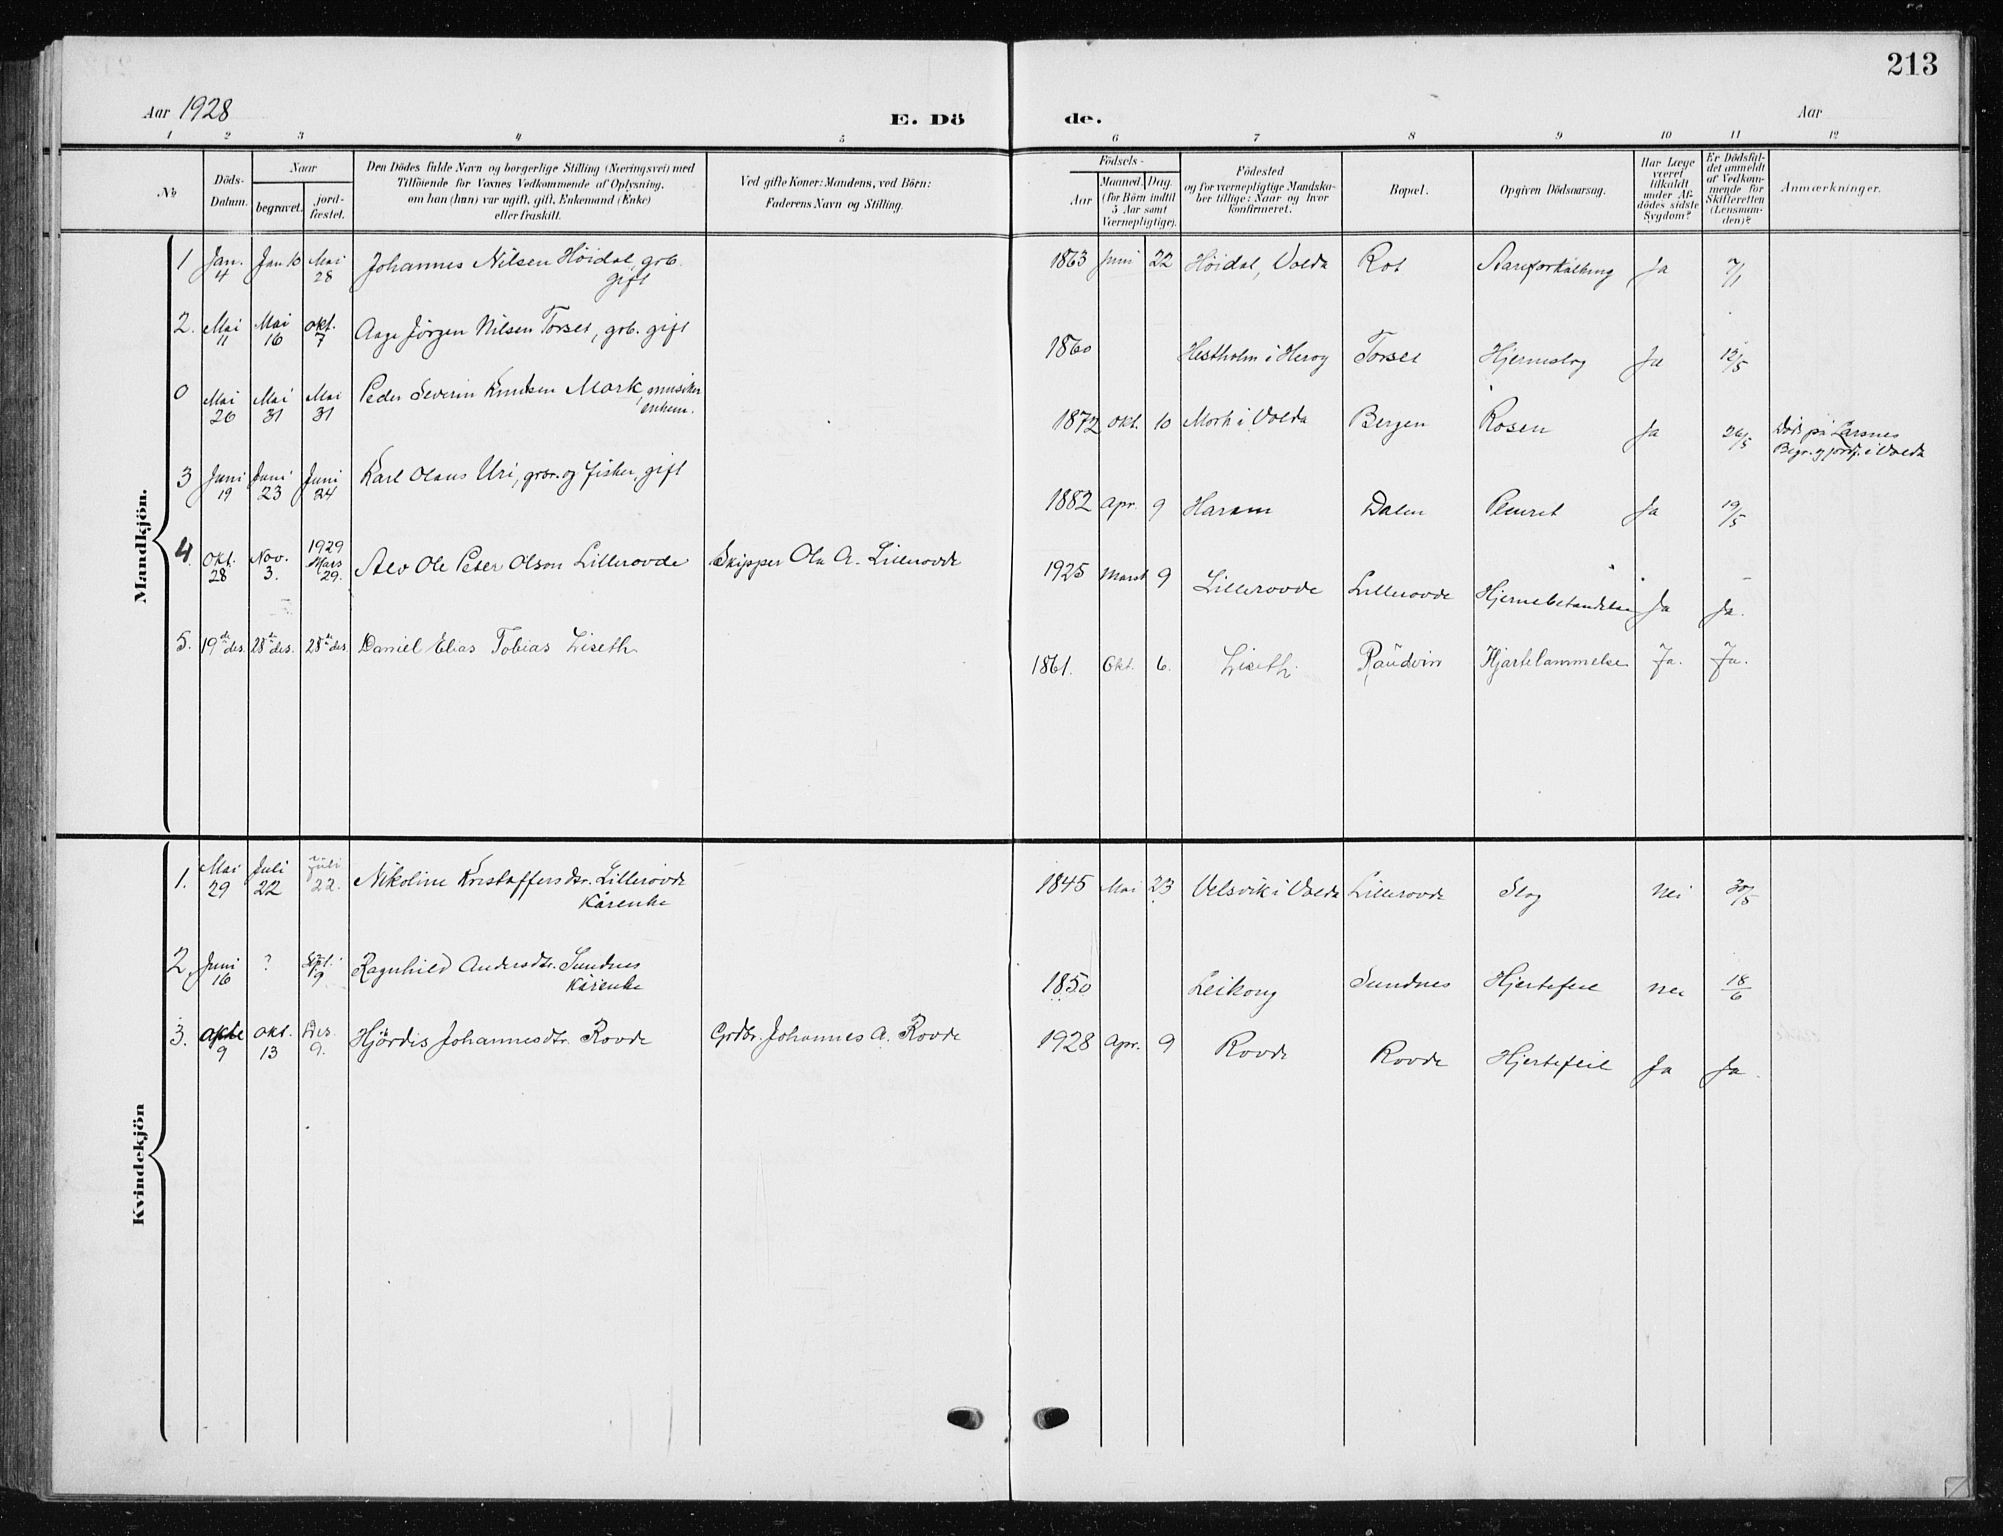 213
Aar 1928 E. Dö de. Aar
1 2 3 4 5 6 7 8 9 10 11 12
No
Döds-
Datum.
Naar
begravet.
jord-
fæstet.
Den Dödes fulde Navn og borgerlige Stilling (Næringsvei) med
Tilföiende for Voxnes Vedkommende af Oplysning,
om han (hun) var ugift, gift, Enkemand (Enke)
eller fraskilt.
Ved gifte Koner: Mandens, ved Börn:
Faderens Navn og Stilling.
Födsels-
Aar
Maaned. Dag.
(for Börn indtil
5 Aar samt
Værnepligtige).
Födested
og for værnepligtige Mandska-
ber tillige: Naar og hvor
konfirmeret.
Bopæl.
Opgiven Dödsaarsag.
Har Læge
været
tilkaldt
under Af-
dödes sidste
Sygdom?
Er Dödsfal-
det anmeldt
af Vedkom-
mende for
Skifteretten
(Lensman-
den)?
Anmærkninger.
Mandkjön.
1 Jan. 4 Jan 10 Mai 28 Johannes Nilsen Höidal, grb. gift 1863 Juni 22 Höidal, Volda Rot Aareforkalkning Ja 7/1
2. Mai 11 Mai 16 Okt. 7 Aage Jörgen Nilsen Torset, grb. gift 1860 Hestholm i Heröy Torset Hjerneslag Ja 12/5
0 Mai 26 Mai 31 Mai 31 Peder Severin Knutsen Mark, musiker enkem. 1872 Okt. 10 Mork i Volda Bergen Rosen Ja 26/5 Död på Larsnes
Begr. og jordf. i Volda
3 Juni 19 Juni 23 Juni 24 Karl Olaus Uri, grbr. og fisker, gift 1882 Apr. 9 Haram Dalen Pleurit Ja 19/5
4. Okt. 28 Nov. 3. 1929 Mars 29. Alv Ole Peter Olson Lillerovde Skipper Ola A. Lillerovde 1925 Marst 9 Lillerovde Lillerovde Ja Ja.
5. 19de des. 28de des. 28de des. Daniel Elias Tobias Liseth 1861. Okt. 6. Liseth Raudvin Hjartelammelse Ja. Ja.
Kvindekjön
1. Mai 29 Juli 22 Juli 22. Nikoline Kristoffersdtr. Lillerovde
Kårenke 1845 Mai 23 Velsvik i Volda Lillerovde Slag Nei 30/5
2. Juni 16 ? Sept. 9 Ragnhild Andersdtr. Sundnes
Kårenke 1850 Leikong Sundnes Hjertefeil nei 18/6
3. 9 Okt. 13 Des. 9. Hjördis Johannesdtr. Rovde Grdbr. Johannes A. Rovde 1928 Apr. 9 Rovde Rovde Hjertefeil Ja Ja.